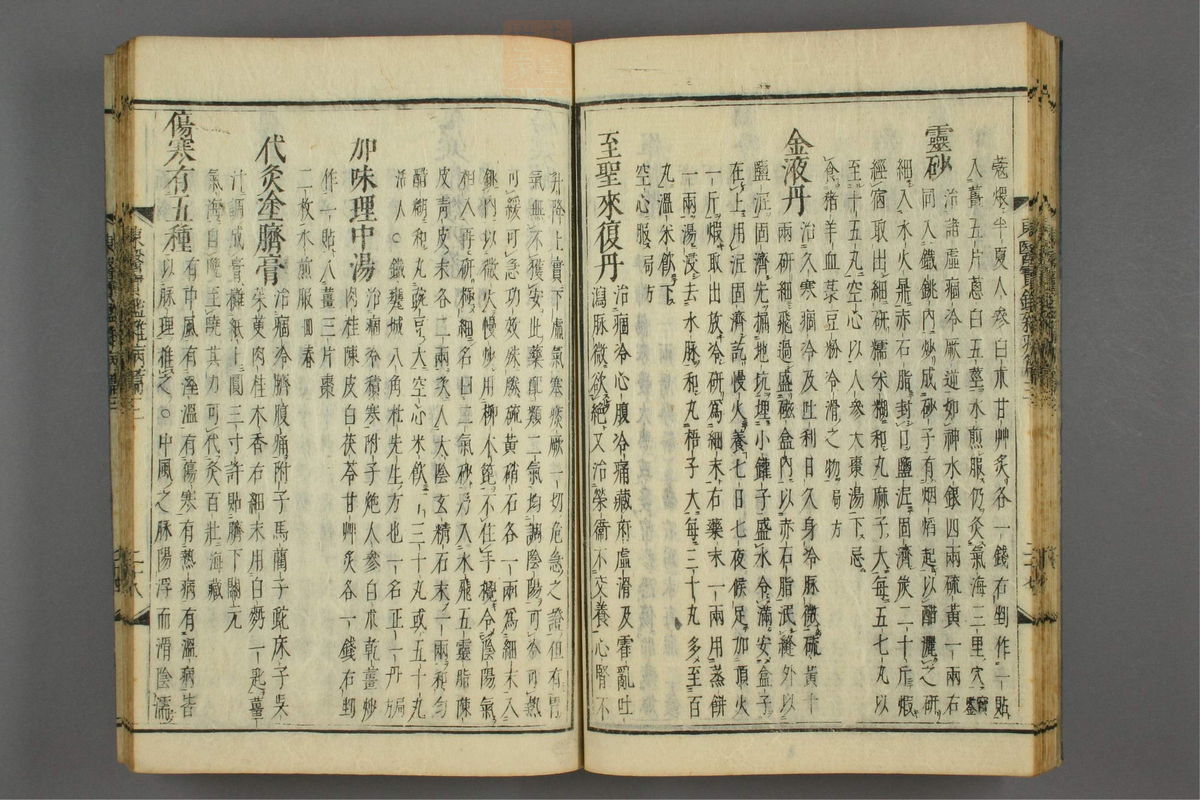 薟煨半夏人參白朮甘艸炙各一錢右剉作一貼
入薑五片葱白五莖水煎服仍灸氣海三里穴寶鑑
靈砂治諸虛痼冷厥逆如神水銀四兩硫黃一兩右
同入鐵銚內炒成砂子有烟焰起以醋灑之研
細入水火鼎赤石脂封口鹽泥固濟候二十斤煆
經宿取出細研糯米糊和丸麻子大每五七丸以
至十五丸空心以人參大棗湯下忌
食猪羊血菉豆粉冷滑之物局方
金液丹治久寒痼冷及吐利日久身冷脉微硫黃十
兩研細飛過盛磁盒內以赤石脂泥縫外以
鹽泥固濟先掘地坑埋小鑵子盛水令滿安盒子
在上用泥固濟訖慢火養七日七夜候足加頂火
一斤煆取出放冷研爲細末右藥末一兩用蒸餠
一兩湯浸去水脉和丸梧子大每三十丸多至百
丸溫米飮下
空心服局方
至聖來復丹治痼冷心腹冷痛藏府虛滑及霍亂吐
瀉脉微欲絶又治榮衛不交養心腎不
升降上實下虛氣塞痰厥一切危急之證但有胃
氣無不獲安此藥配類二氣均調陰陽可冷可熱
可緩可急功效殊勝硫黃硝石各一兩爲細末入
銚內以微火慢炒用柳木篦不住手攪令陰陽氣
相入再研極細名曰二氣砂乃入水飛五靈脂陳
皮靑皮末各二兩次入太陰玄精石末一兩和勻
醋糊和丸豌豆大空心米飮下三十丸或五十丸
活人○鐵甕城八角杜先生方也一名正一丹局
加味理中湯治痼冷積寒附子炮人參白朮乾薑炒
肉桂陳皮白茯苓甘艸炙各一錢右剉
作一貼入薑三片棗
二枚水煎服回春
代灸塗臍膏治痼冷臍腹痛附子馬藺子蛇床子吳
茱萸肉桂木香右細末用白麪一匙薑
汁調成膏攤紙上圓三寸許貼臍下關元
氣海自曉至晩其力可代灸百壯海藏
傷寒有五種有中風有濕溫有傷寒有熱病有溫病皆
以脉理推之○中風之脉陽浮而滑陰濡